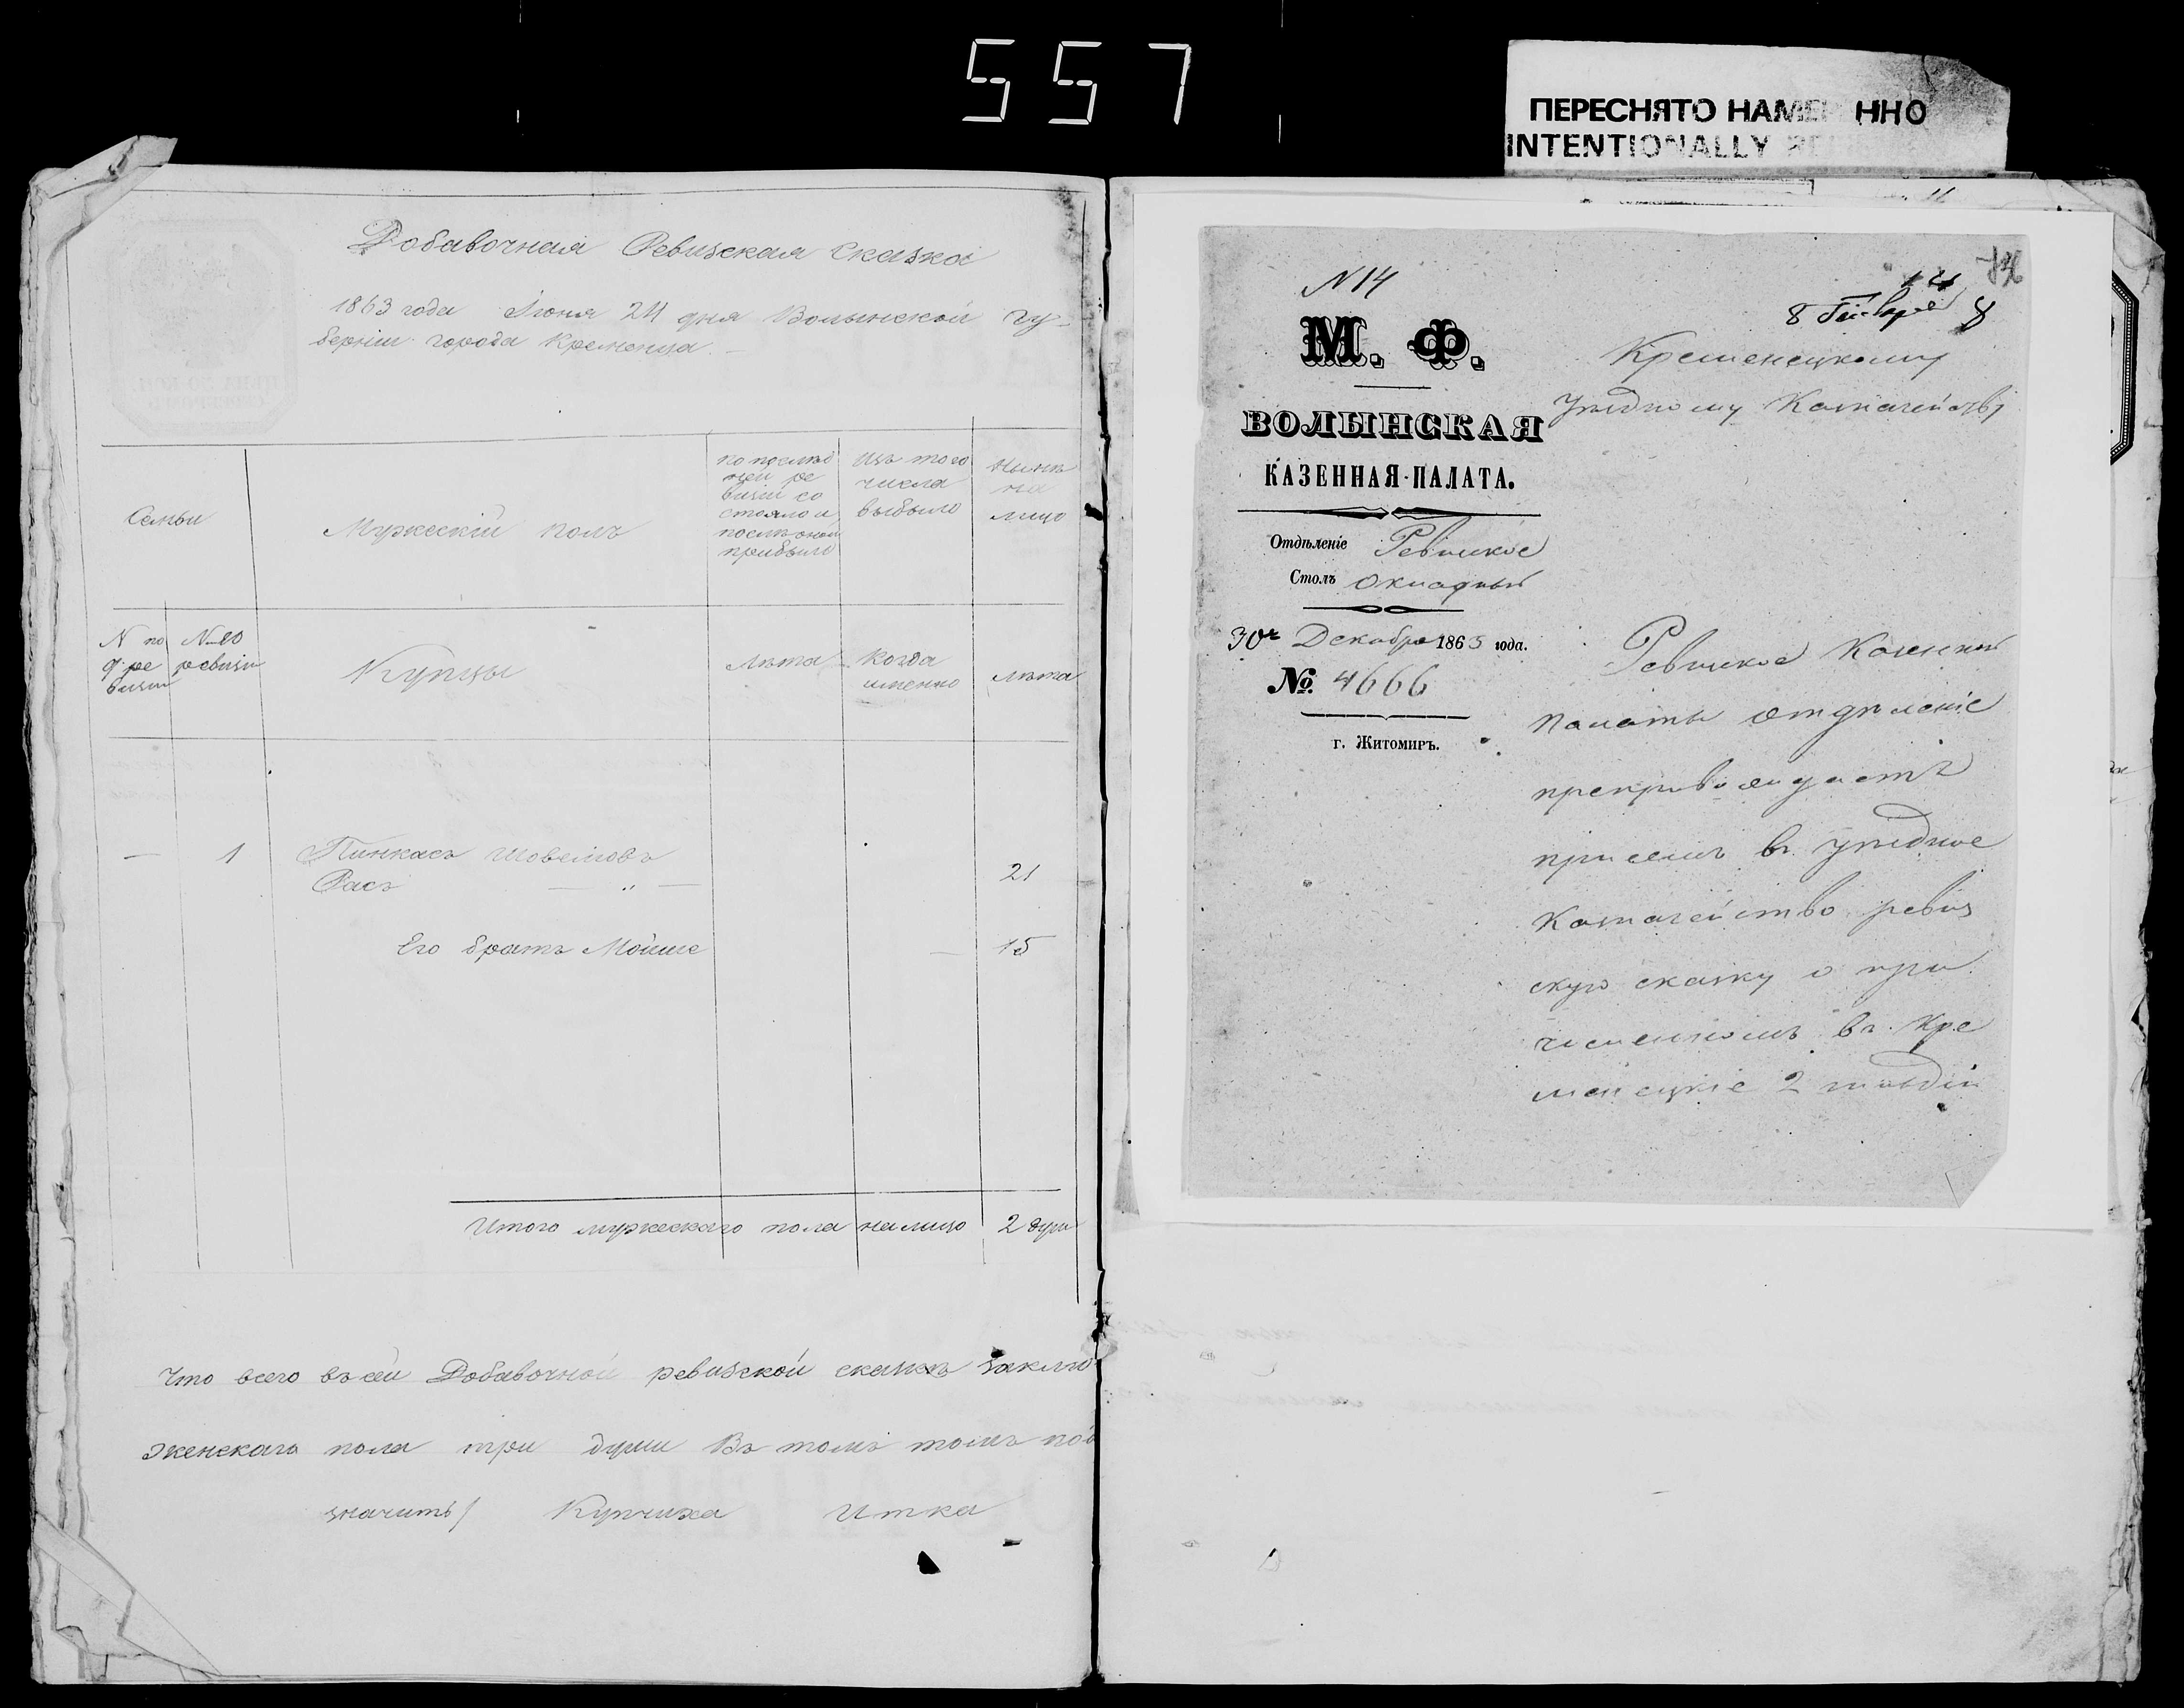 557
ПЕРЕСНЯТО НАМЕРЕННО
INTENTIONALLY
Добавочная Ревизская сказка
1863 года Июня 24 дня Волынской Гу-
берніи города Кременца
Семьи
Мужескій полъ
по послѣд
ней ре
визіи со
стояло и
послѣ оной
прибыло
изъ того
числа
выбыло
нынѣ
на
лицо
N по
9 ре
визіи
N по
ревизіи
Купцы
лѣта
когда
именно
лѣта
— 1 Пинкасъ
Расъ — „ — 21
Его братъ Мойше — 15
Итого мужескаго пола налицо 2 души
Что всего въ сей Добавочной ревизской сказкѣ заклю
женскаго пола три души Въ томъ томъ
значитъ/ Купчиха Итка
N 14
М. Ф.
ВОЛЫНСКАЯ
КАЗЕННАЯ ПАЛАТА.
Отдѣленіе Ревизское
Столъ Окладный
30 Декабря 1863 года.
№ 4666
г. Житомиръ.
14
8 Января
Кременецкому
Уѣздному Казначейству
Ревизское Казенной
Палаты Отдѣленіе
препровождаетъ
при семъ въ уѣздное
Казначейство ревиз
скую сказку о при
численномъ въ Кре
менецкіе 2 гильдіи